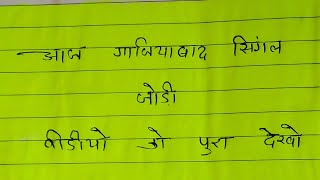 आज गाजियाबाद सिंगल
जोडी
वीडीयो को पुरा देखो